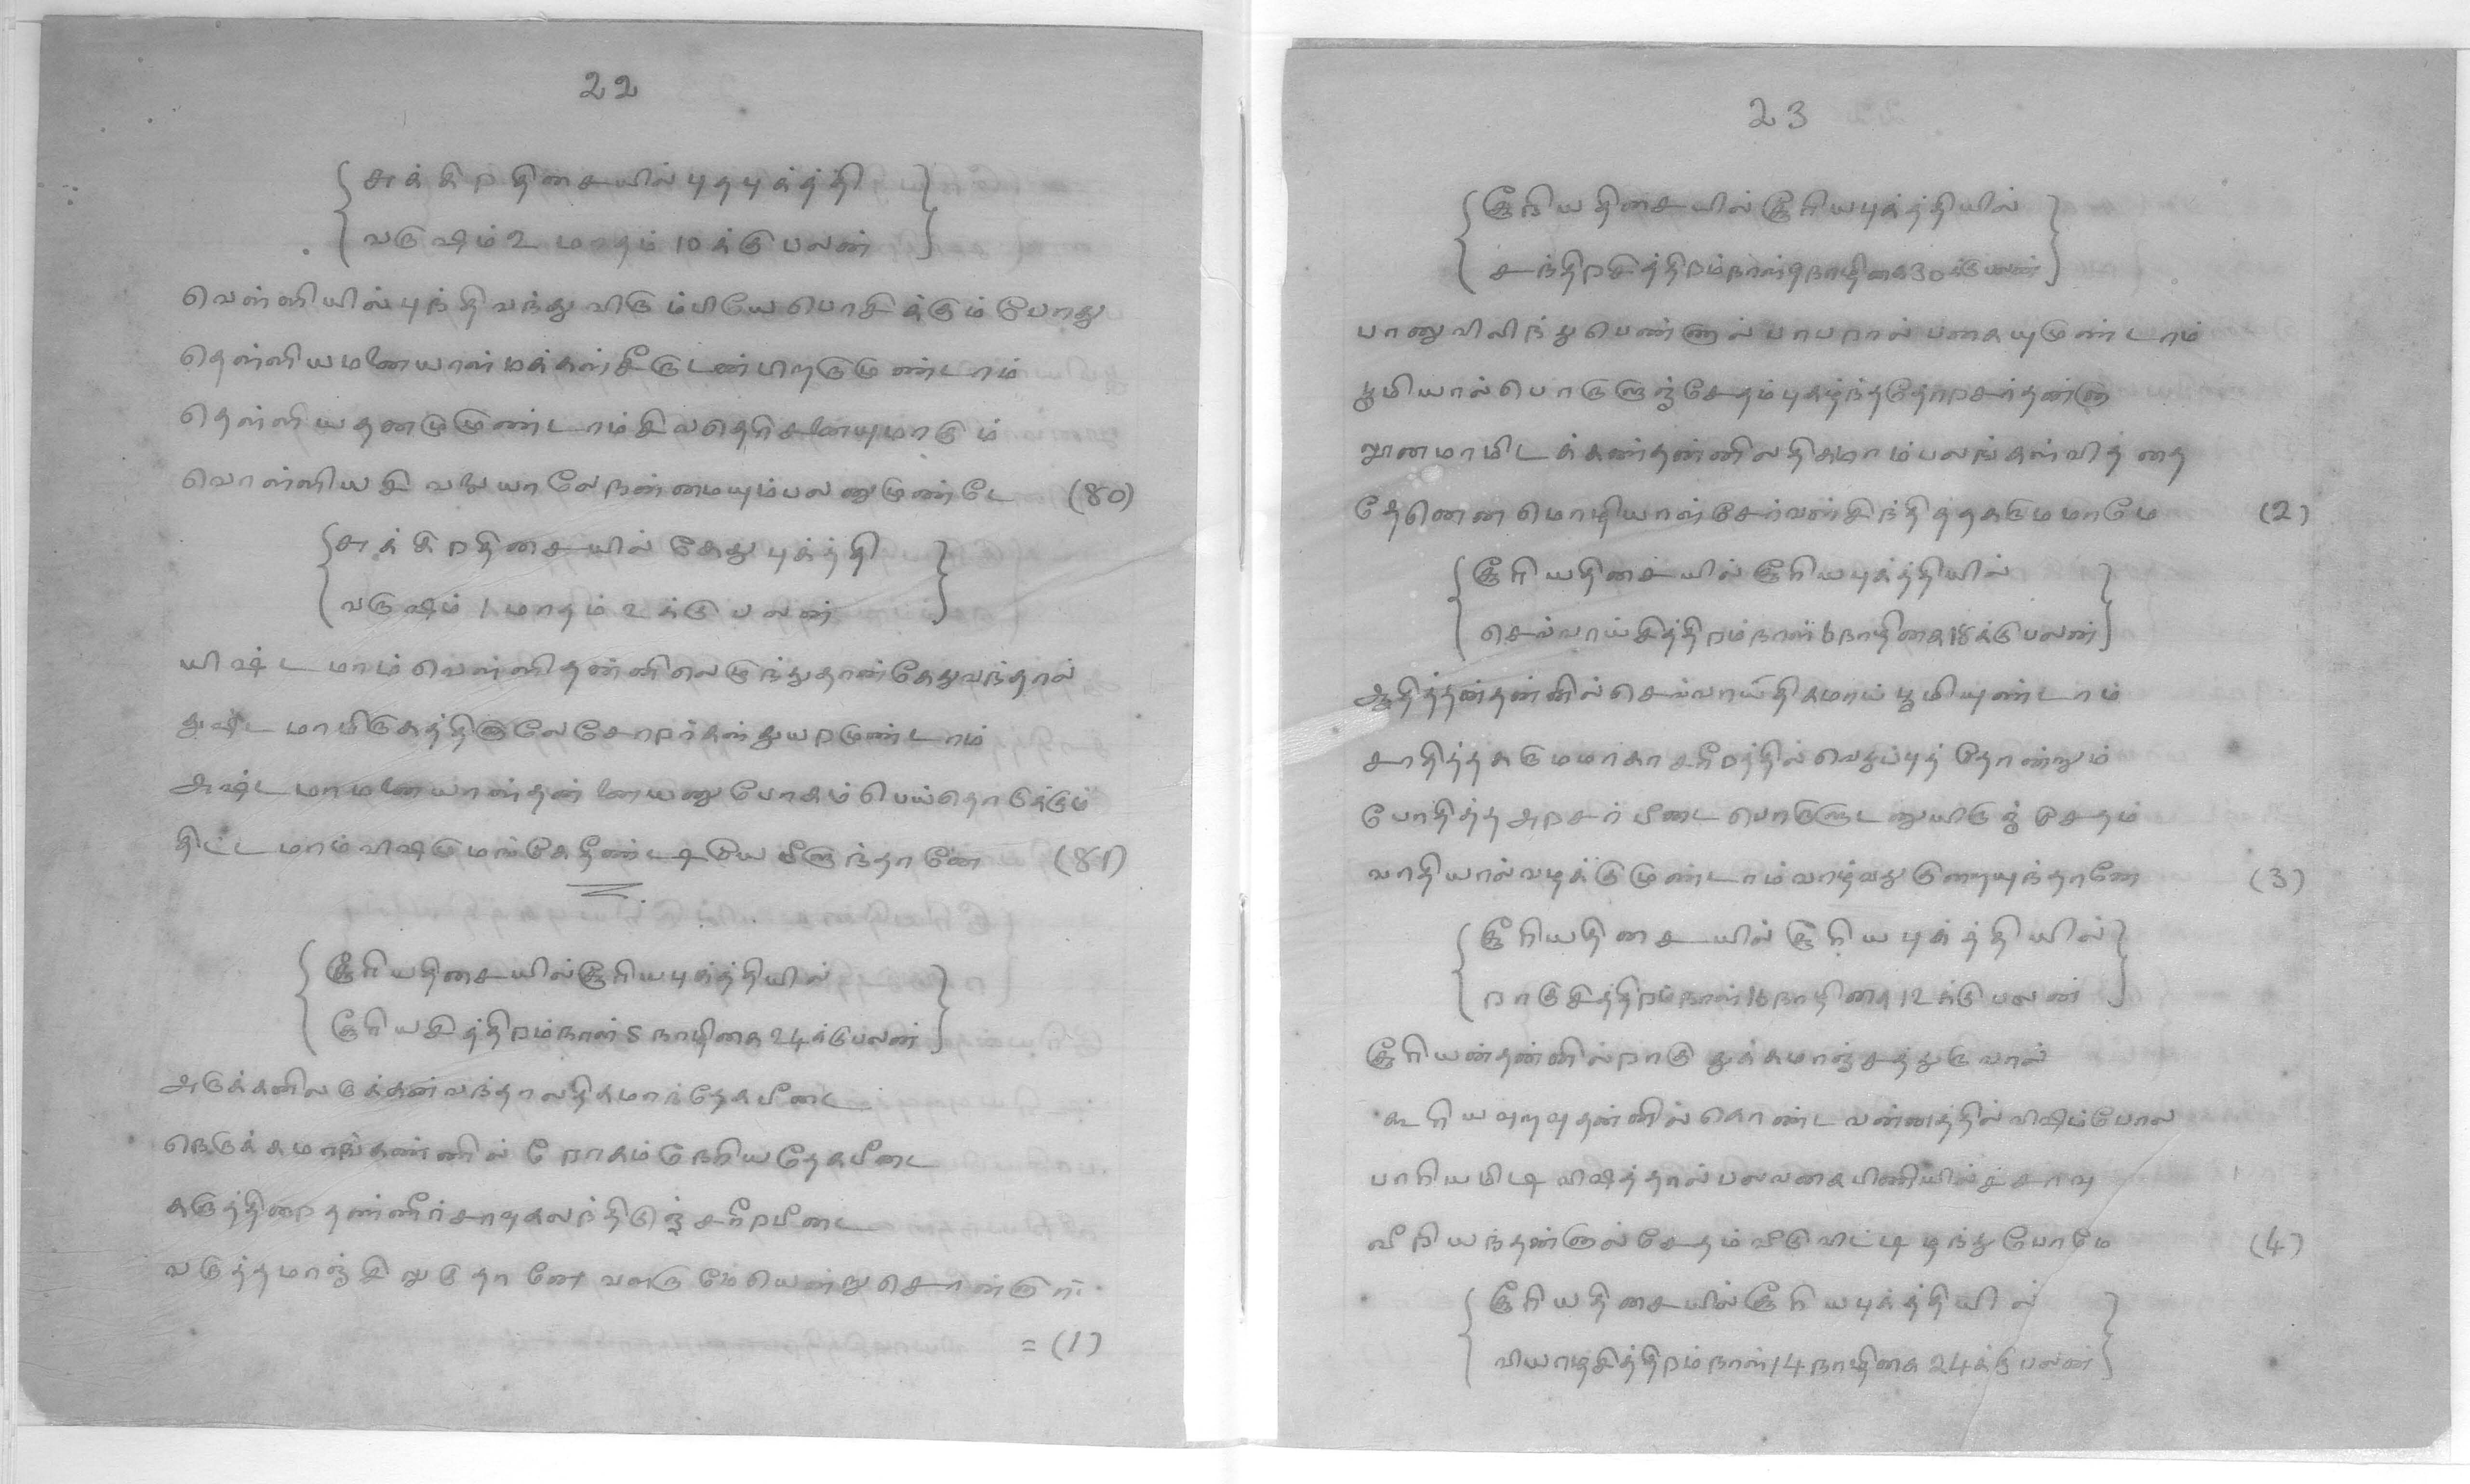 22
சுக்கிற திசையில் புதபுக்த்தி
வருஷம் 2 மாதம் 10 க்கு பலன்
வெள்ளியில்புந்தி வந்து விரும்பியே பொசிக்கும் போது
தெள்ளியமனையாள் மக்கள் சீருடன் பிறருமுண்டாம்
தெள்ளிய தனமுமுண்டாம் சிவதெரிசனையுமாகும்
வொள்ளிய சிவநுயாலே நன்மையும்பலனுமுண்டே (80)
சுக்கிறதிசையில் கேது புக்த்தி
வருஷம் 1 மாதம் 2 க்கு பலன்
யிஷ்டமாம் வெள்ளி தன்னிலெழுந்துதான்கேதுவந்தால்
துஷ்டமாயிருகத்தினாலே சோறர்கள் துயறமுண்டாம்
அஷ்டமாமனையாள்தன்னையனுபோகம் பெய்தொடுக்கும்
திட்டமாம் விஷமுமங்கே தீண்டியே மீளுந்தானே (81)
சூரியதிசையில்சூரியபுக்த்தியில்
சூரியசித்திறம்நாள் 5 நாழிகை 24க்குபலன்
அருக்கனிலருக்கன்வந்தாலதிகமாந்தேகபீடை
நெருக்கமாங்கண்ணில் றோகம்நேரியதேகபீடை
கருத்திறை தண்ணீர்சாவுகலந்திடுஞ் சரீறபீடை
வருத்தமாஞ் சிறுகுதானே வளருமேயென்று சொன்னார்.
= (1)
23
சூரிய திசையில் சூரியபுக்த்தியில்
சந்திறசித்திறம்நாள்9நாழிகை30க்குபலன்
பானுவிலிந்துபெண்ணால் பாபறால் பகையுமுண்டாம்
பூமியால்பொருளுஞ்சேதம்புகழ்ந்ததோறசர்தண்டு
னூனமாமிடக்கண்தன்னிலதிகமாம்பலங்கள் வித்தை
தேனென மொழியாள்சேர்வள்சிந்தித்தகருமமாமே (2)
சூரியதிசையில் சூரியபுக்த்தியில்
செவ்வாய்சித்திறம்நாள் 6நாழிகை18க்குபலன்
ஆதித்தன்தன்னில்செவ்வாய்திகமாய் பூமியுண்டாம்
சாதித்தகருமமாகா சரீறத்தில்வெதுப்புத் தோன்றும்
போதித்த அறசர் பீடை பொருளுடனுயிருஞ் சேதம்
வாதியால்வழக்குமுண்டாம்வாழ்வதுகுறையுந்தானே (3)
சூரியதிசையில் சூரியபுக்த்தியில்
றாகுசித்திறம்நாள்16நாழிகை12க்குபலன்
சூரியன்தன்னில்றாகு துக்கமாஞ்சத்துருவால்
கூரியவுறவுதன்னில் கொண்டவன்னத்தில் விஷம்போல
பாரியமிடி விஷத்தால் பலவகைபிணியில்ச்சாவு
வீரியந்தன்னால்சேதம் வீடுவிட்டிழந்துபோமே (4)
சூரியதிசையில்சூரியபுக்த்தியில்
வியாழசித்திறம்நாள்14நாழிகை24க்குபலன்